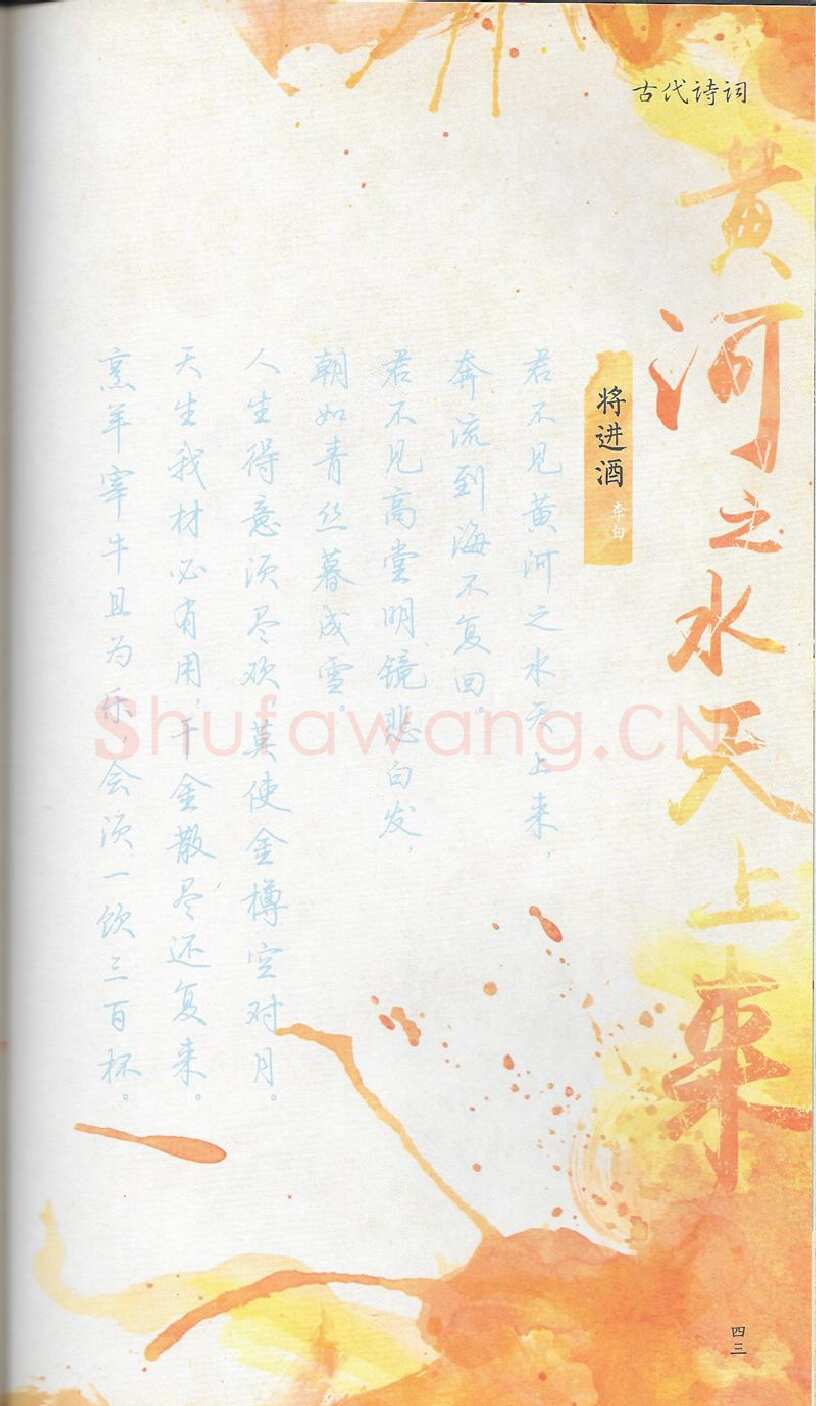 古代诗词
黄河之水天上来
将进酒
李白
君不见黄河之水天上来，
奔流到海不复回。
君不见高堂明镜悲白发，
朝如青丝暮成雪。
人生得意须尽欢，莫使金樽空对月。
天生我材必有用，千金散尽还复来。
烹羊宰牛且为乐，会须一饮三百杯。
Shufawang.CN
四三